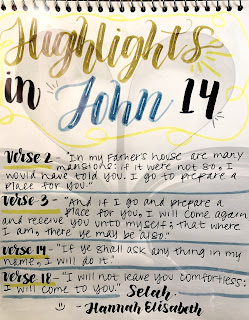 Highlights
in John 14
Verse 2 - "In my Father's house are many
mansions: if it were not so, I
would have told you. I go to prepare a
place for you."
Verse 3 - "And if I go and prepare a
place for you, I will come again
and receive you unto myself; that where
I am, there ye may be also."
Verse 14 - "If ye shall ask any thing in my
name, I will do it."
Verse 18 - "I will not leave you comfortless:
I will come to you." Selah.
- Hannah Elisabeth